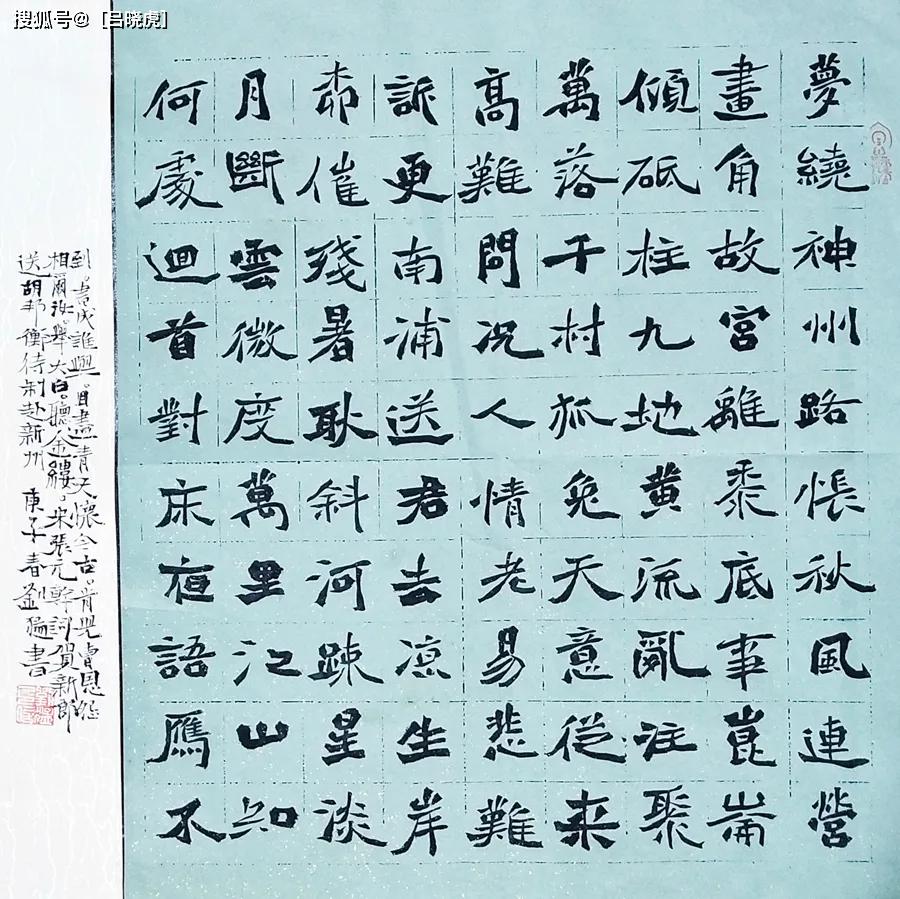 搜狐号@［吕晓虎］
夢繞神州路悵秋風連營
畫角故宮離黍底事崑崙
傾砥柱九地黄流亂注聚
萬落千村狐兔天意從來
高難問況人情老易悲難
訴更南浦送君去涼生岸
柳催殘暑耿斜河踈星淡
月斷雲微度萬里江山知
何處迴首對床夜語鴈不
到書成誰與。目盡青天懷今古。肯兒曹恩怨
相爾汝。舉大白。聽金縷。宋張元幹詞賀新郎
送胡邦衡待制赴新州 庚子春劉書